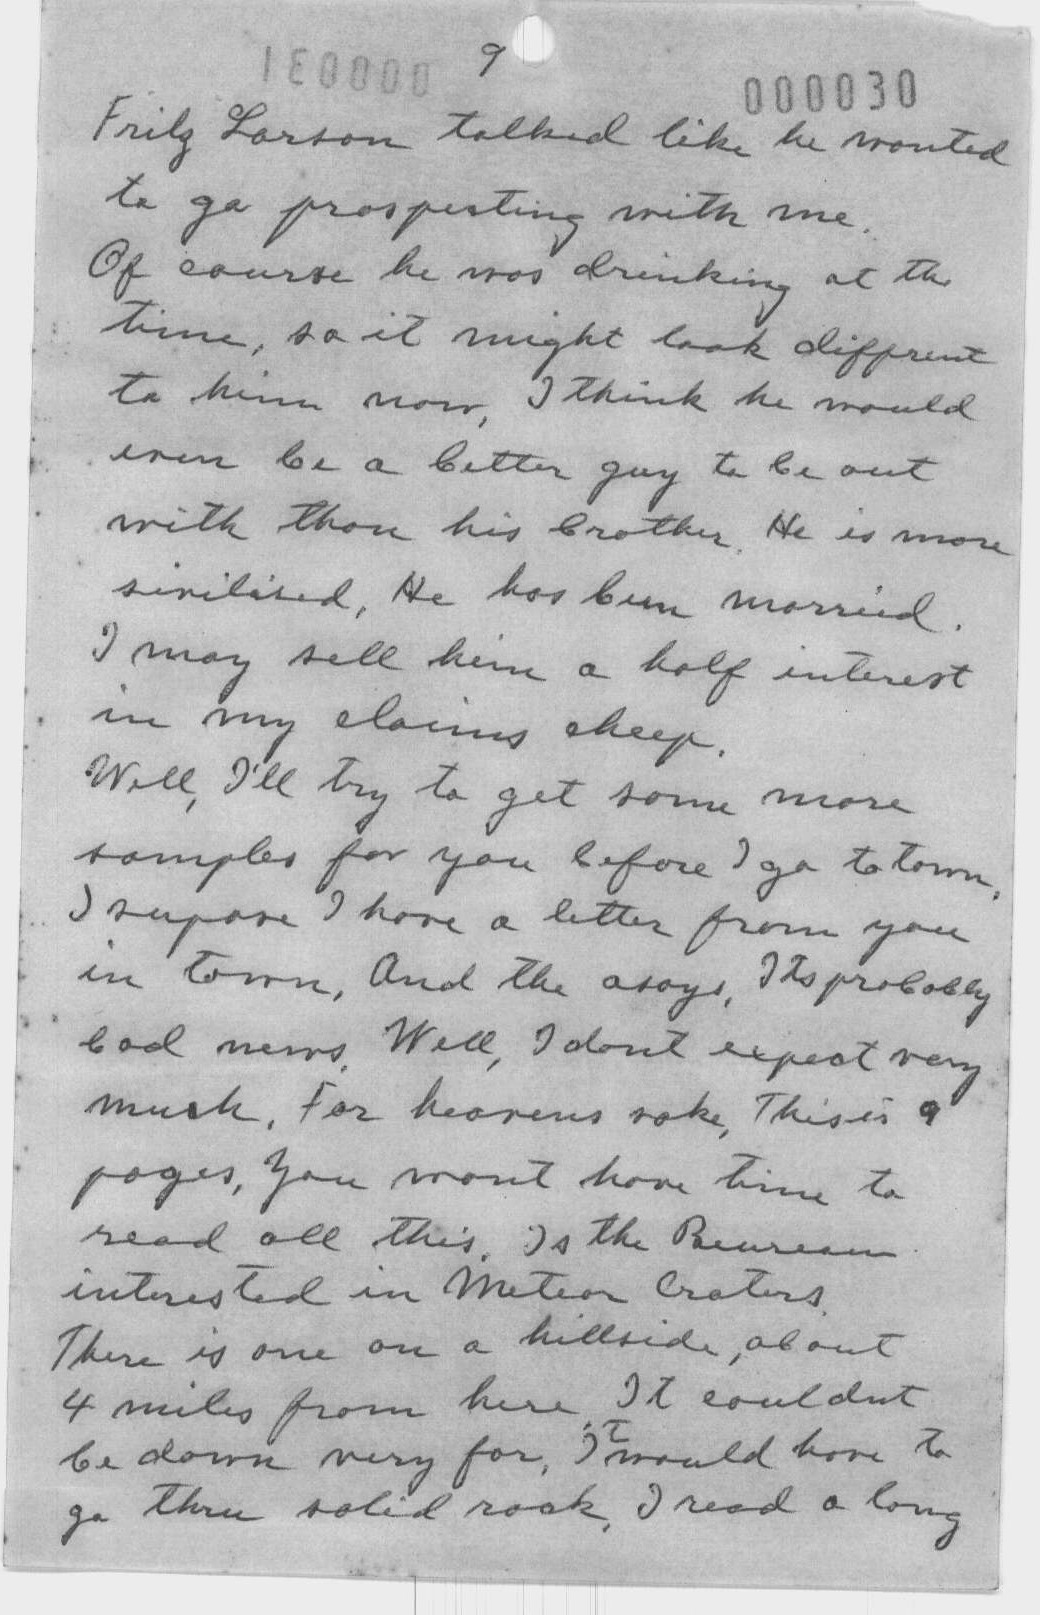 9
000031
000030
Fritz Larson talked like he wanted
to go prospecting with me.
Of course he was drinking at the
time, so it might look diffrent
to him now, I think he would
even be a better guy to be out
with than his brother. He is more
sivilised, He has been married.
I may sell him a half interest
in my claims cheep.
Well, I'll try to get some more
samples for you before I go to town.
I supose I have a letter from you
in town, And the asays, Its probably
bad news. Well, I dont expect very
much, For heavens sake, This is 9
pages, You wont have time to
read all this. Is the Beureau
interested in Meteor Craters.
There is one on a hillside, about
4 miles from here It couldnt
be down very far, It would have to
go thru solid rock, I read a long